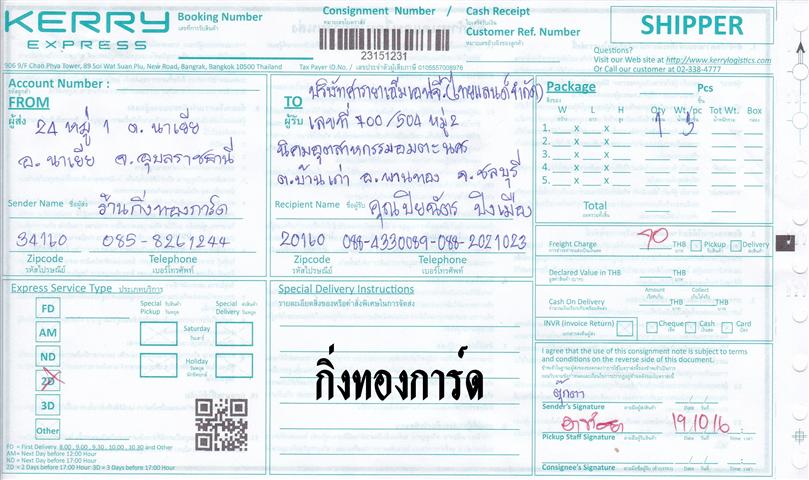 KERRY EXPRESS
Booking Number
เลขที่การรับสินค้า
Consignment Number / Cash Receipt
หมายเลขใบตราส่ง ใบเสร็จรับเงิน
23151231
Customer Ref. Number
หมายเลขอ้างอิงของลูกค้า
SHIPPER
Questions?
Visit our Web site at http://www.kerrylogistics.com
Or Call our customer at 02-338-4777
906 9/F Chao Phya Tower, 89 Soi Wat Suan Plu, New Road, Bangrak, Bangkok 10500 Thailand
Tax Payer ID.No. / เลขประจำตัวผู้เสียภาษี 0105557008976
Account Number :
FROM
ผู้ส่ง 24 หมู่ 1 ต. นาเยีย
อ. นาเยีย จ.อุบลราชธานี
Sender Name ชื่อผู้ส่ง ร้านกิ่งทองการ์ด
34160 085-8261244
Zipcode Telephone
รหัสไปรษณีย์ เบอร์โทรศัพท์
TO
ผู้รับ
เลขที่ 700/504 หมู่2
นิคมอุตสาหกรรมอมตะนคร
ต.บ้านเก่า อ.พานทอง จ.ชลบุรี
Recipient Name ชื่อผู้รับ คุณปิยฉัตร ปิงเมือง
20160 088-4330089-088-2021023
Zipcode Telephone
รหัสไปรษณีย์ เบอร์โทรศัพท์
Package Pcs
W L H Qty Wt./pc Tot Wt. Box
1. x x 1 3
2. x x
3. x x
4. x x
5. x x
Total
Freight Charge 90 THB Pickup Delivery
Declared Value in THB THB
Amount Collect
Cash On Delivery THB
INVR (Invoice Return) Cheque Cash Card
I agree that the use of this consignment note is subject to terms and conditions on the reverse side of this document.
ตุ๊กตา
Sender's Signature Date วันที่
19,10,16
Pickup Staff Signature Date วันที่ Time เวลา
Consignee's Signature Date วันที่ Time เวลา
Express Service Type ประเภทบริการ
FD
AM
ND
2D
3D
Other
Special Pickup
Special Delivery
Saturday
วันเสาร์
Holiday
วันหยุด
FD = First Delivery 8.00 , 9.00 , 9.30 , 10.00 , 10.30 and Other
AM= Next Day before 12:00 Hour
ND = Next Day before 17:00 Hour
2D = 2 Days before 17:00 Hour 3D = 3 Days before 17:00 Hour
Special Delivery Instructions
รายละเอียดสิ่งของหรือคำสั่งพิเศษในการจัดส่ง
กิ่งทองการ์ด